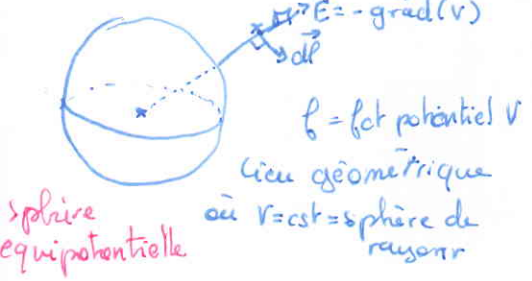 E = - grad(V)
dl
f = fct potentiel V
lieu géométrique
où V = cst = sphère de
rayon r
sphère
equipotentielle